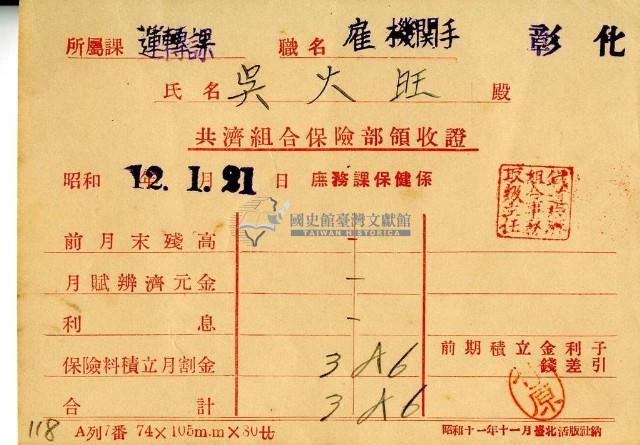 所屬課 運轉課 職名 雇 機関手 彰化
氏名 吳火旺 殿
共濟組合保險部領收證
昭和 12.年 1.月 21 日 庶務課保健係
國史館臺灣文獻館
TAIWAN HISTORICA
前月末殘高 -
月賦辨濟元金 -
利息 -
保險料積立月割金 3 46
前期積立金利子
錢差引
合計 3 46
原
118
A列7番 74×105m.m×80廿
昭和十一年十一月臺北活版社納